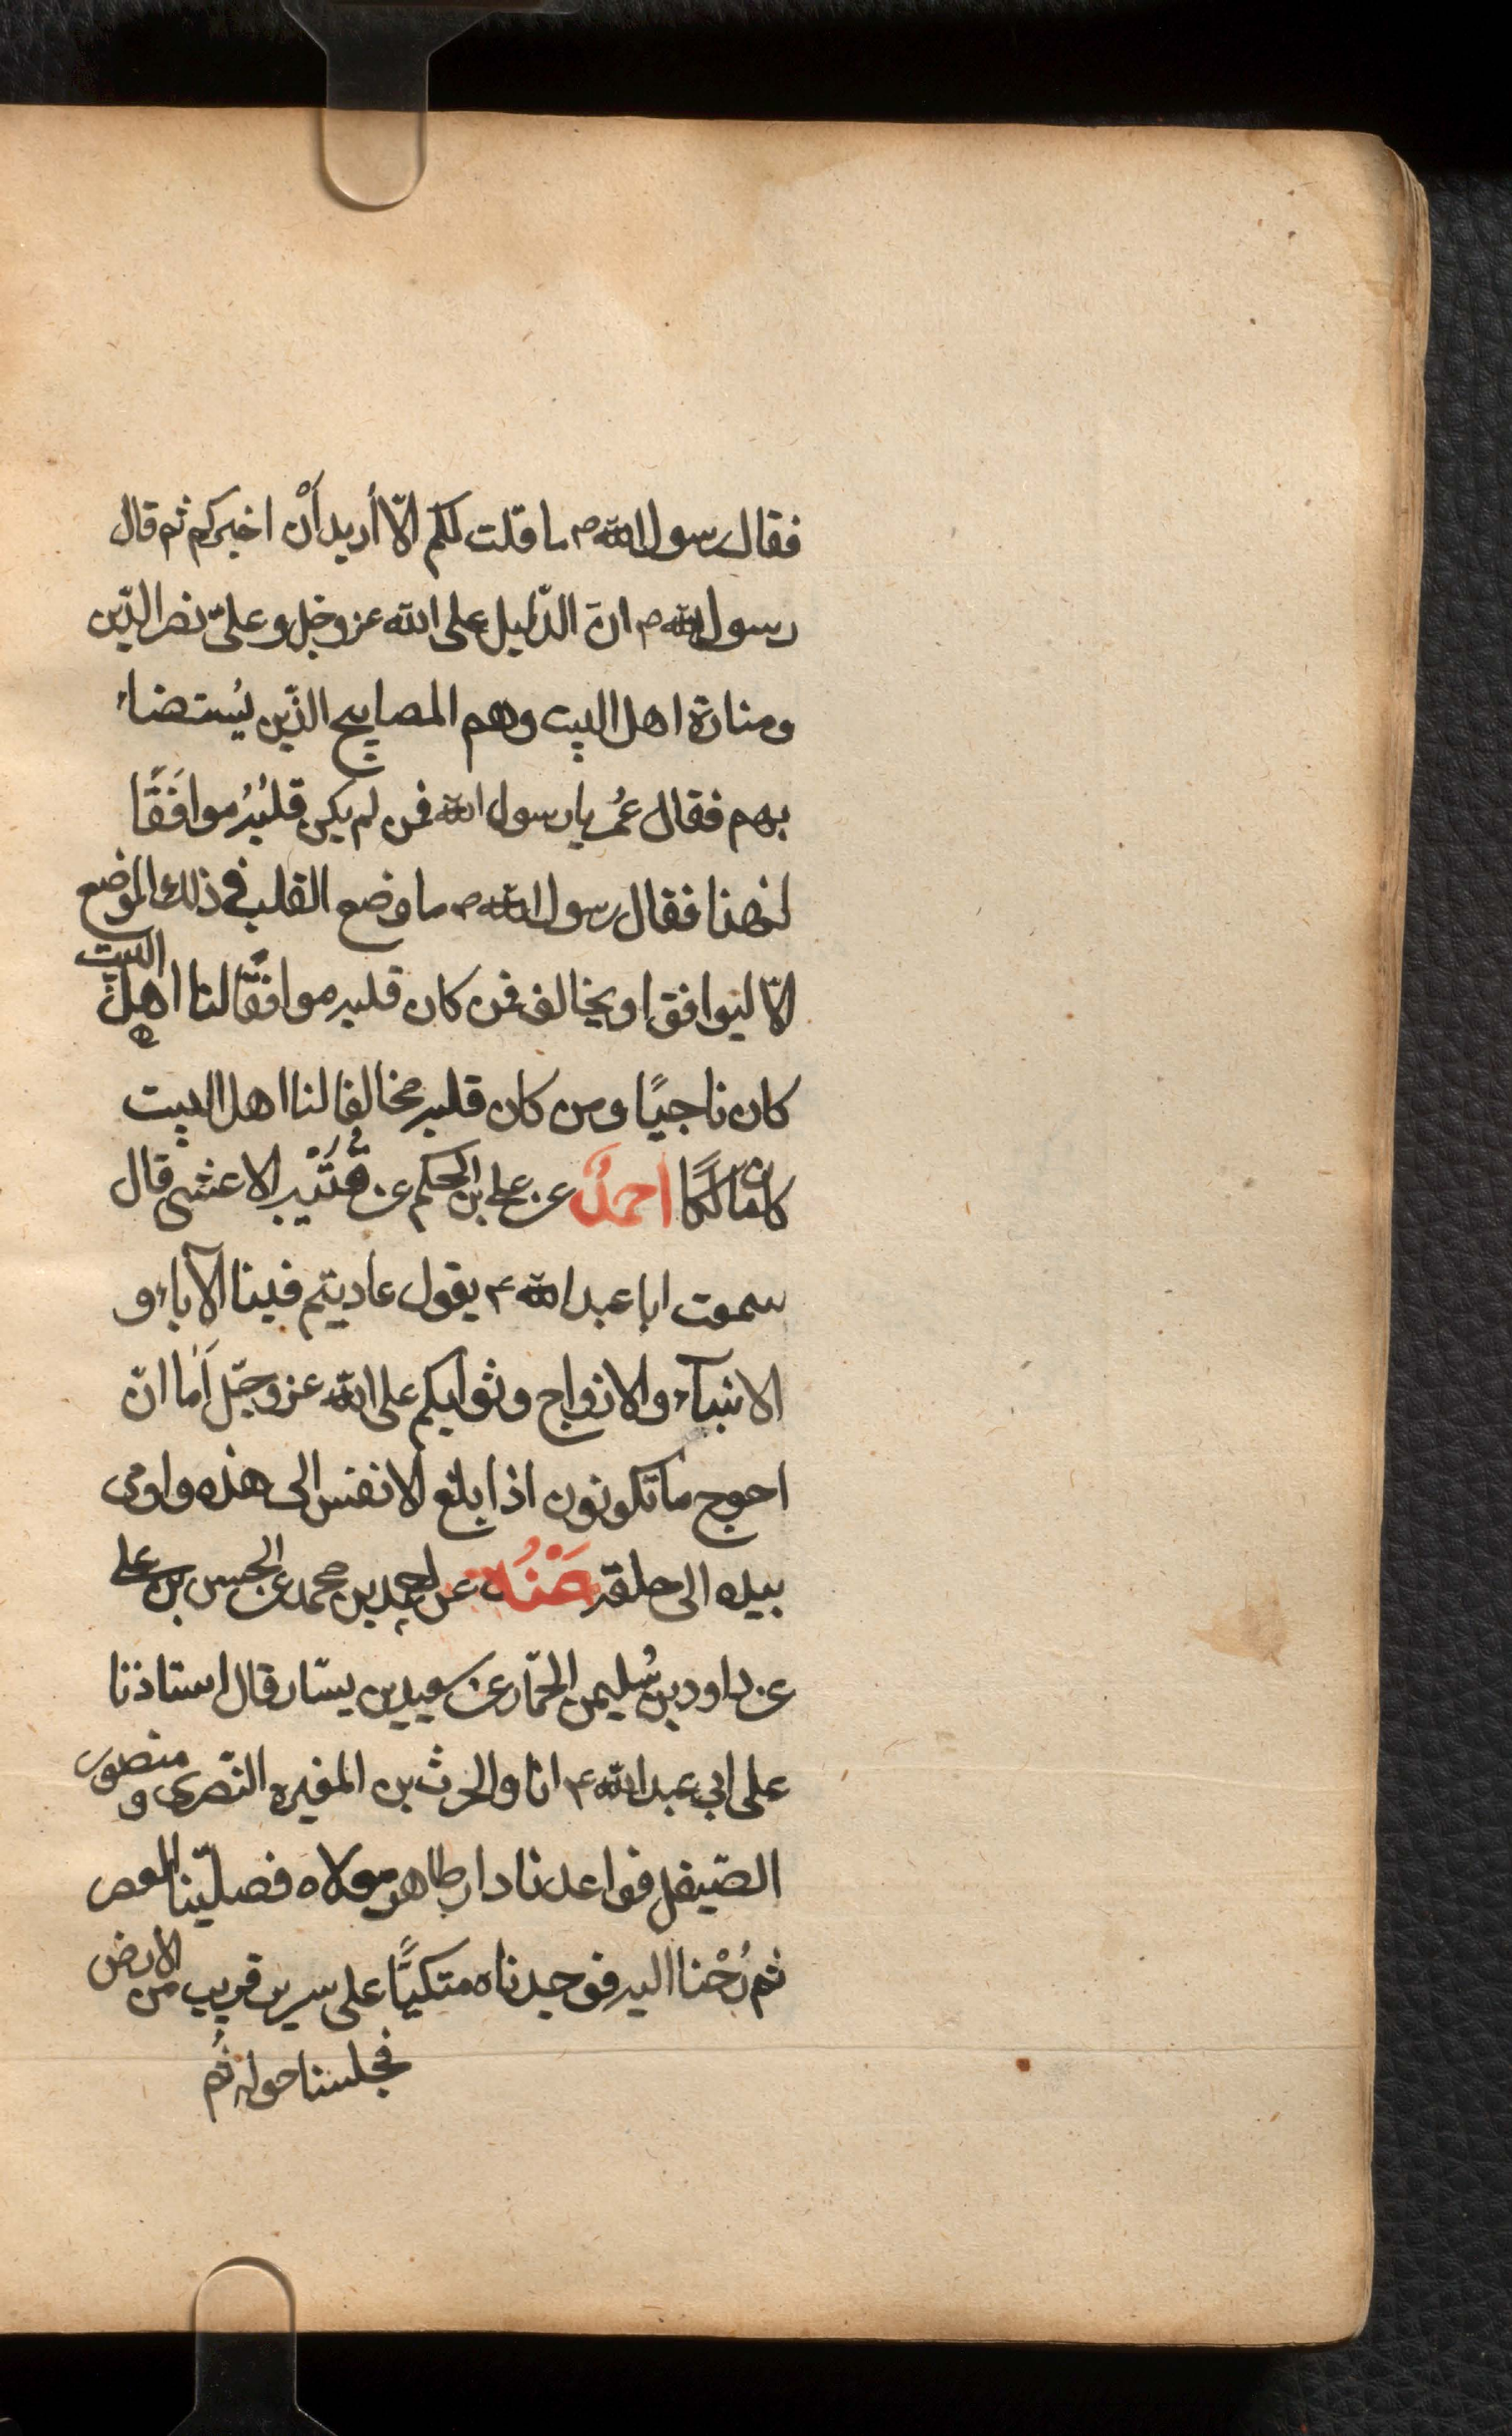 فقال رسول الله ص ما قلت لكم الّا أريد أنْ اخبركم ثم قال
رسول الله ص انّ الدّليل على الله عز وجل وعلىّ نصر الدّين
ومنارة اهل البيت وهم المصابيح الذّين يُستضاء
بهم فقال عُمر يا رسول الله فمن لم يكن قلبُهُ موافَقًا
لهذا فقال رسول الله ص ما وضع القلب فى ذلك الموضع
الّا ليوافق او يخالف فمن كان قلبه موافقًا لنا اهل البيت
كان ناجيًا ومن كان قلبه مخالفا لنا اهل البيت
كان هالكًا احمدُ عن على بن الحكم عن قُتَيْبه الاعشى قال
سمعت ابا عبد الله ع يقول عاديتم فينا الآباء و
الابناء والازواج وثوابكم على الله عز وجّل اَما انّ
احوج ما تكونون اذا بلغ الانفس الى هذه واومى
بيده الى حلقه عَنْهُ عن احمد بن محمد عن الحسن بن على
عن داود بن سُليمن الحمّار عن سعيد بن يسّار قال استاذنا
على ابى عبد الله ع انا والحرث بن المغيره النّصرى و منصور
الصّيقل فواعدنا دار طاهر مولاه فصلّينا العصر
ثم رُحْنا اليه فوجدناه متكيًّا على سرير قريب من الارض
فجلسنا حوله ثُم